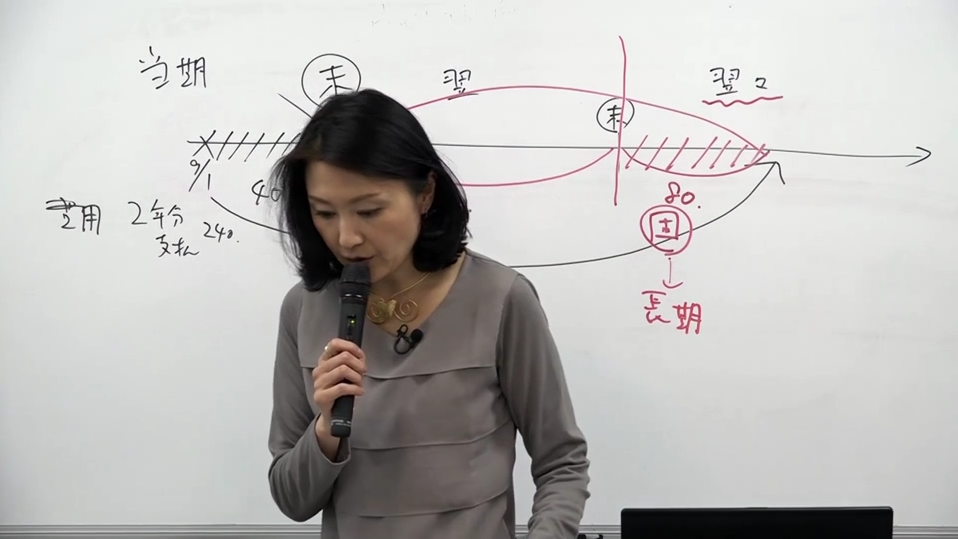 当期
末
翌
末
翌々
9/1
40
費用
2年分
支払
240.
80.
固
長期